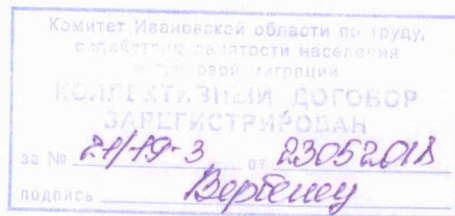 Комитет Ивановской области по труду,
содействию занятости населения
и трудовой миграции
КОЛЛЕКТИВНЫЙ ДОГОВОР
ЗАРЕГИСТРИРОВАН
за № 21/19-3 от 23052018
подпись